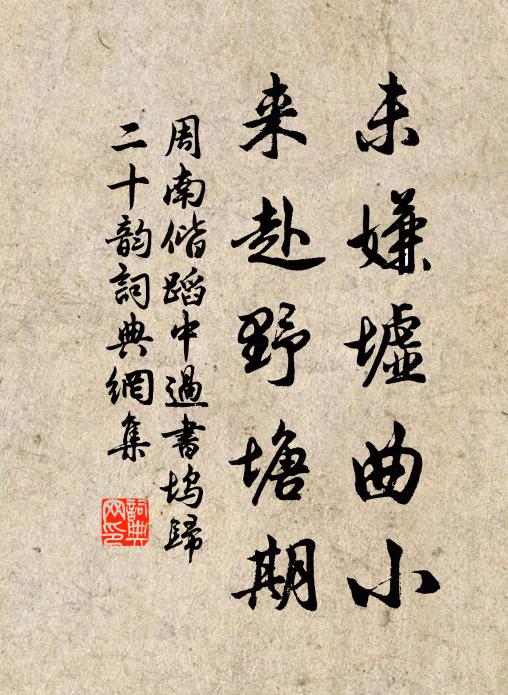 未嫌墟曲小
来赴野塘期
周南偕蹈中過書坞歸
二十韵詞典網集
詞典网印